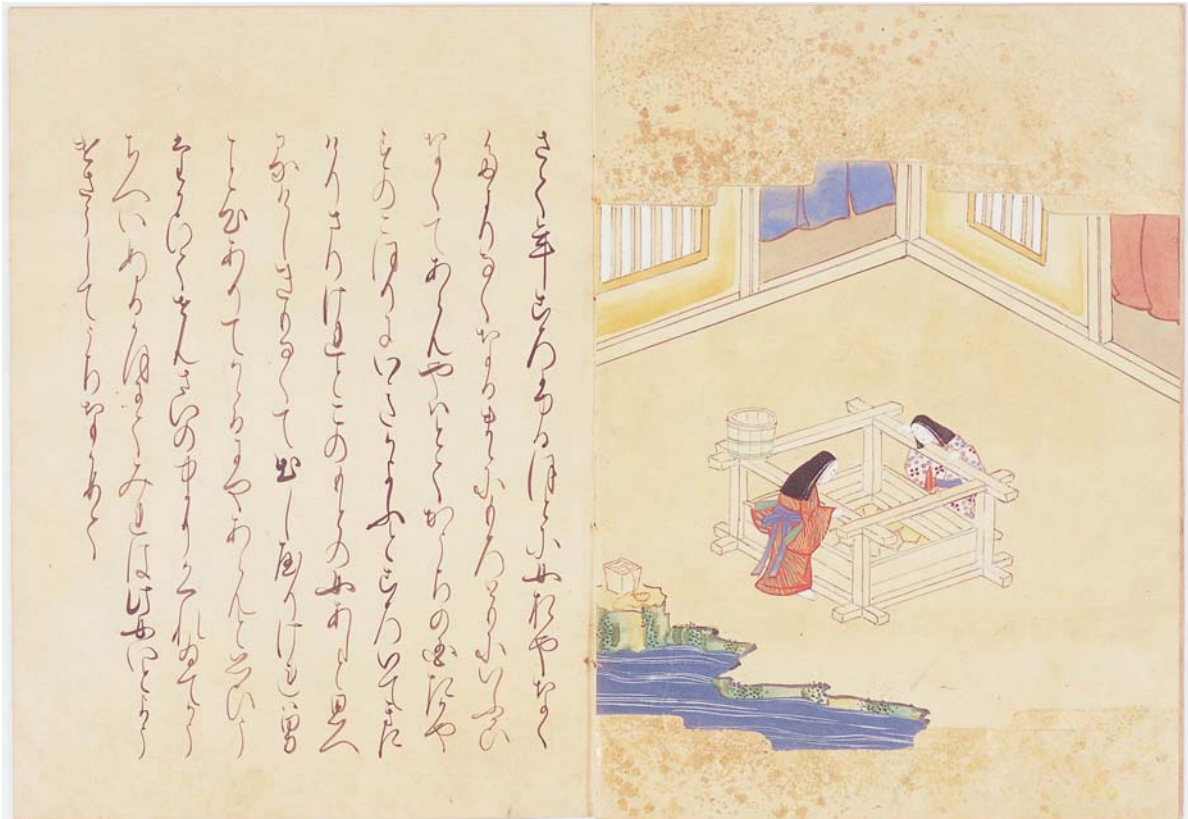 さて年ころふるほとに女おやなく
たよりなくなるまゝにもろともにいふかひ
なくてあらんやはとてかうちの国たかや
すのこほりにいきかよふところいてきに
けりさりけれとこのもとの女あしと思へ
るけしきもなくて出しやりけれは男
こと心ありてかゝるにやあらんと思ひう
たかひてせんさいの中にかくれゐてかう
ちへいぬるかほにてみれは此女いとよう
けさうしてうちなかめて